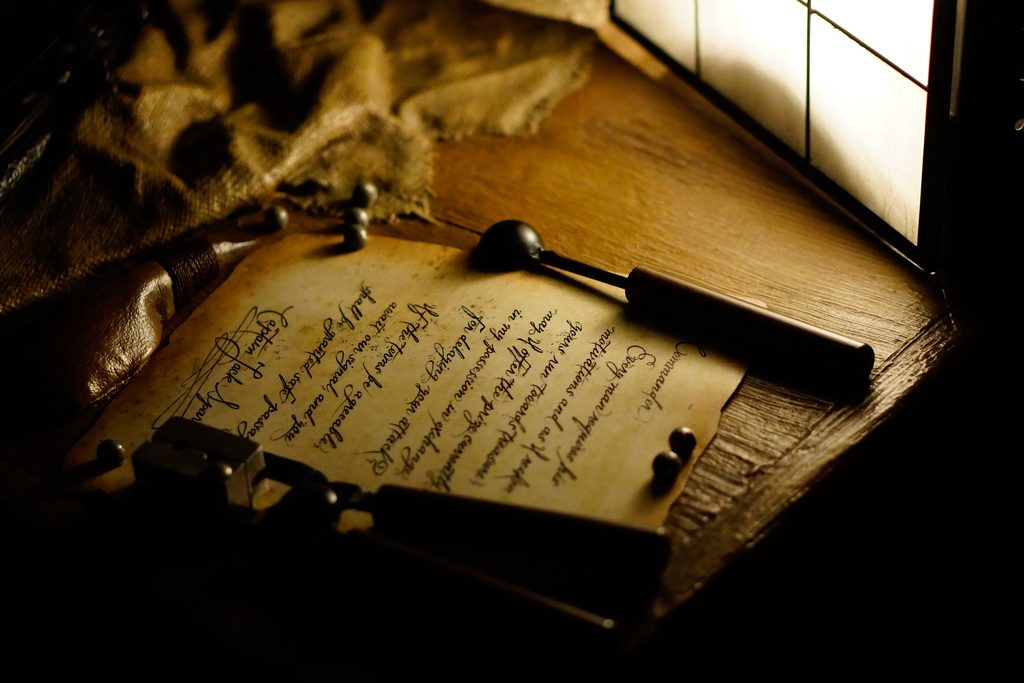 Commander
Every man requires his
motivations and as I
yours run towards treasure,
may I offer the prize currently
in my possession in exchange
for delaying your attack?
If the terms be agreeable
await our signal, and you
shall be granted safe passage
Captain